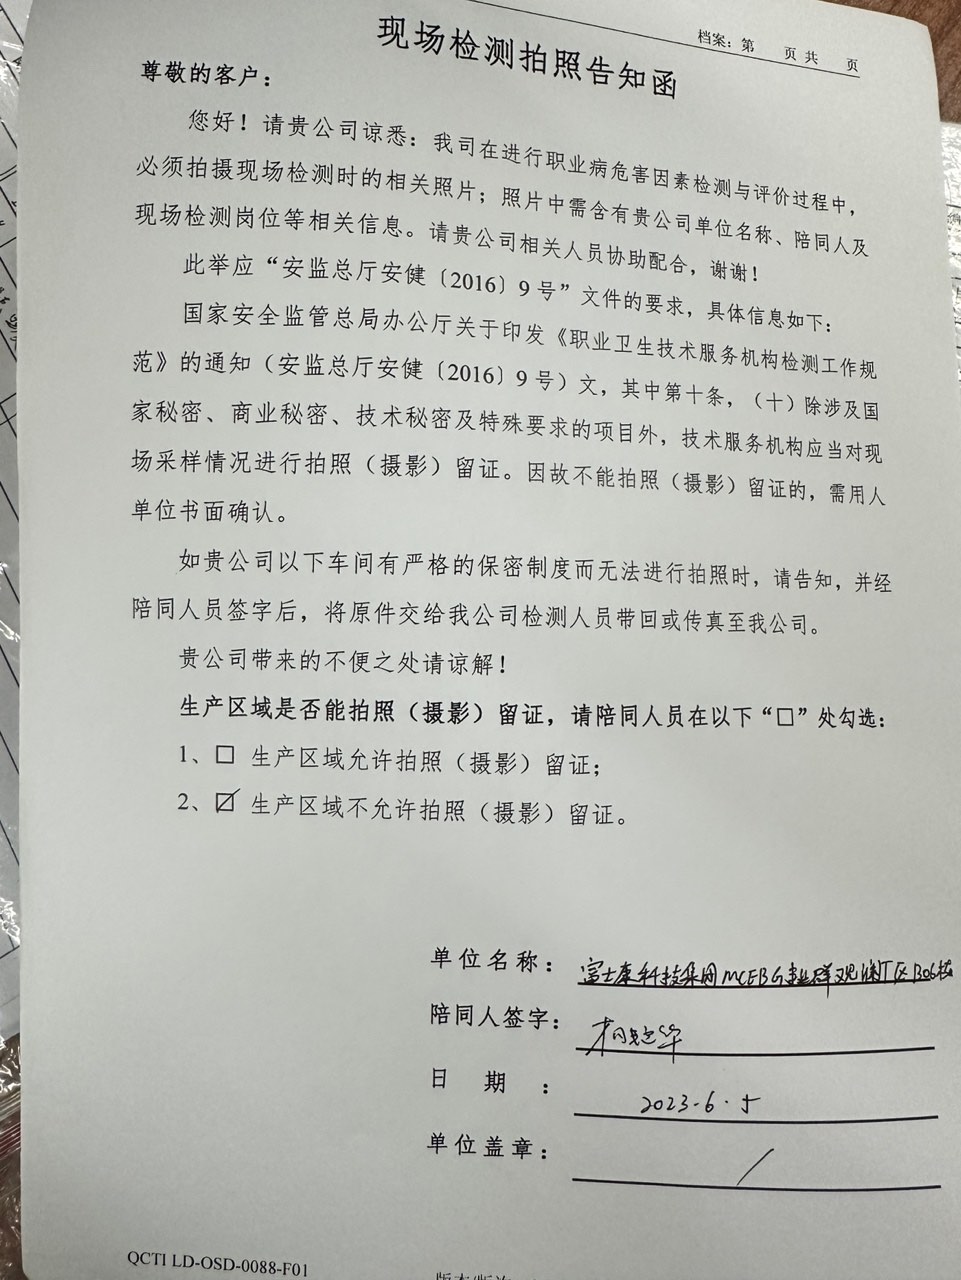 档案：第 页 共 页
现场检测拍照告知函
尊敬的客户：
您好！请贵公司谅悉：我司在进行职业病危害因素检测与评价过程中，
必须拍摄现场检测时的相关照片；照片中需含有贵公司单位名称、陪同人及
现场检测岗位等相关信息。请贵公司相关人员协助配合，谢谢！
此举应“安监总厅安健〔2016〕9 号”文件的要求，具体信息如下：
国家安全监管总局办公厅关于印发《职业卫生技术服务机构检测工作规
范》的通知（安监总厅安健〔2016〕9 号）文，其中第十条，（十）除涉及国
家秘密、商业秘密、技术秘密及特殊要求的项目外，技术服务机构应当对现
场采样情况进行拍照（摄影）留证。因故不能拍照（摄影）留证的，需用人
单位书面确认。
如贵公司以下车间有严格的保密制度而无法进行拍照时，请告知，并经
陪同人员签字后，将原件交给我公司检测人员带回或传真至我公司。
贵公司带来的不便之处请谅解！
生产区域是否能拍照（摄影）留证，请陪同人员在以下“□”处勾选：
1、□ 生产区域允许拍照（摄影）留证；
2、☑ 生产区域不允许拍照（摄影）留证。
单位名称：富士康科技集团MCEBG事业群观澜厂区B06栋
陪同人签字：
日 期 ：2023.6.5
单位盖章：/
QCTI LD-OSD-0088-F01